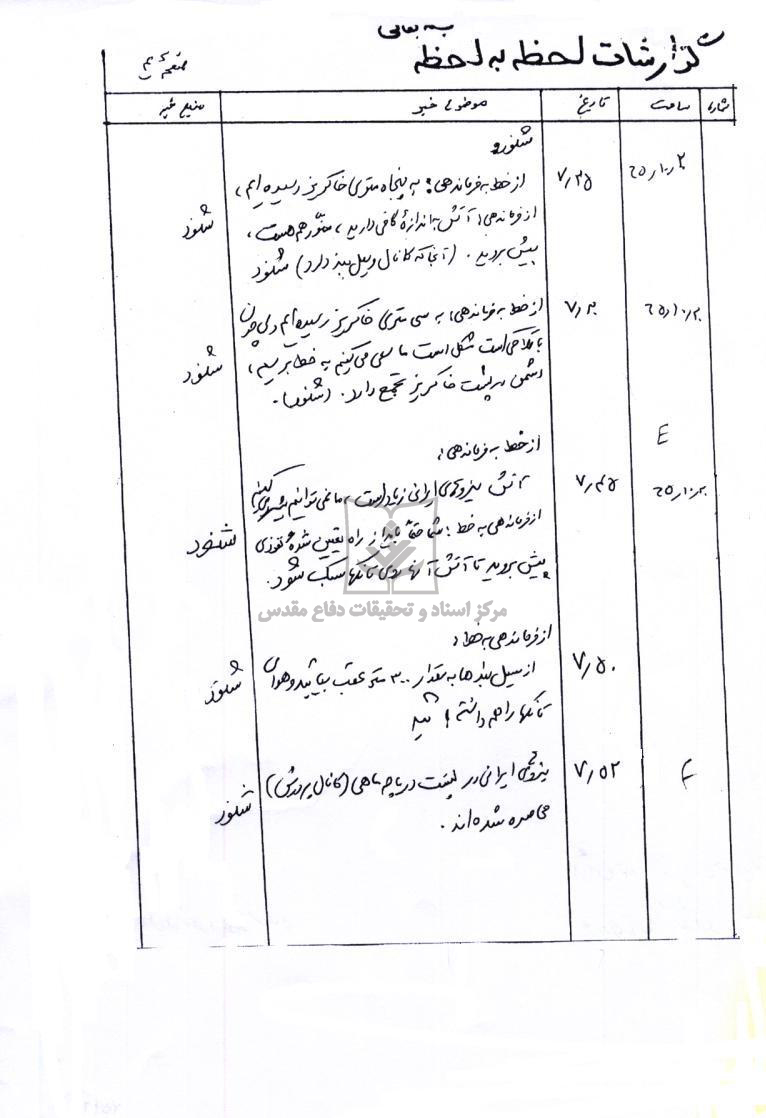 به تعالی
گزارشات لحظه به لحظه
صفحه
شماره ساعت تاریخ موضوع خبر منبع خبر
شنود
۶۵/۱۰/۲۰ ۷/۲۵ از خط به فرماندهی: به پنجاه متری خاکریز رسیده‌ایم،
از فرماندهی: آتش به اندازهٔ کافی دارید، منور هم هست، شنود
پیش بروید. (آنجا که کانال وسیل بند دارد) شنود
۶۵/۱۰/۲۰ ۷/۳۰ از خط به فرماندهی، به سی متری خاکریز رسیده‌ایم ولی چون
باتلاقی است مشکل است ما سعی می‌کنیم به خط برسیم، شنود
دشمن در پشت خاکریز تجمع دارد. (شنود).
E از خط به فرماندهی:
۶۵/۱۰/۲۰ ۷/۴۵ آتش نیروهای ایرانی زیاد است، ما نمی‌توانیم پیشروی کنیم
از فرماندهی به خط: شما حتماً باید از راه تعیین شده نفوذی شنود
پیش بروید تا آتش آنها روی تانکها سبک شود.
مرکز اسناد و تحقیقات دفاع مقدس
از فرماندهی به خط:
۷/۵۰ از سیل بندها به مقدار ۳۰۰ متر عقب بیائید و هوای شنود
تانکها را هم داشته باشید
F ۷/۵۲ نیروهای ایرانی در پشت دریاچه ماهی (کانال پرورش) شنود
محاصره شده‌اند.